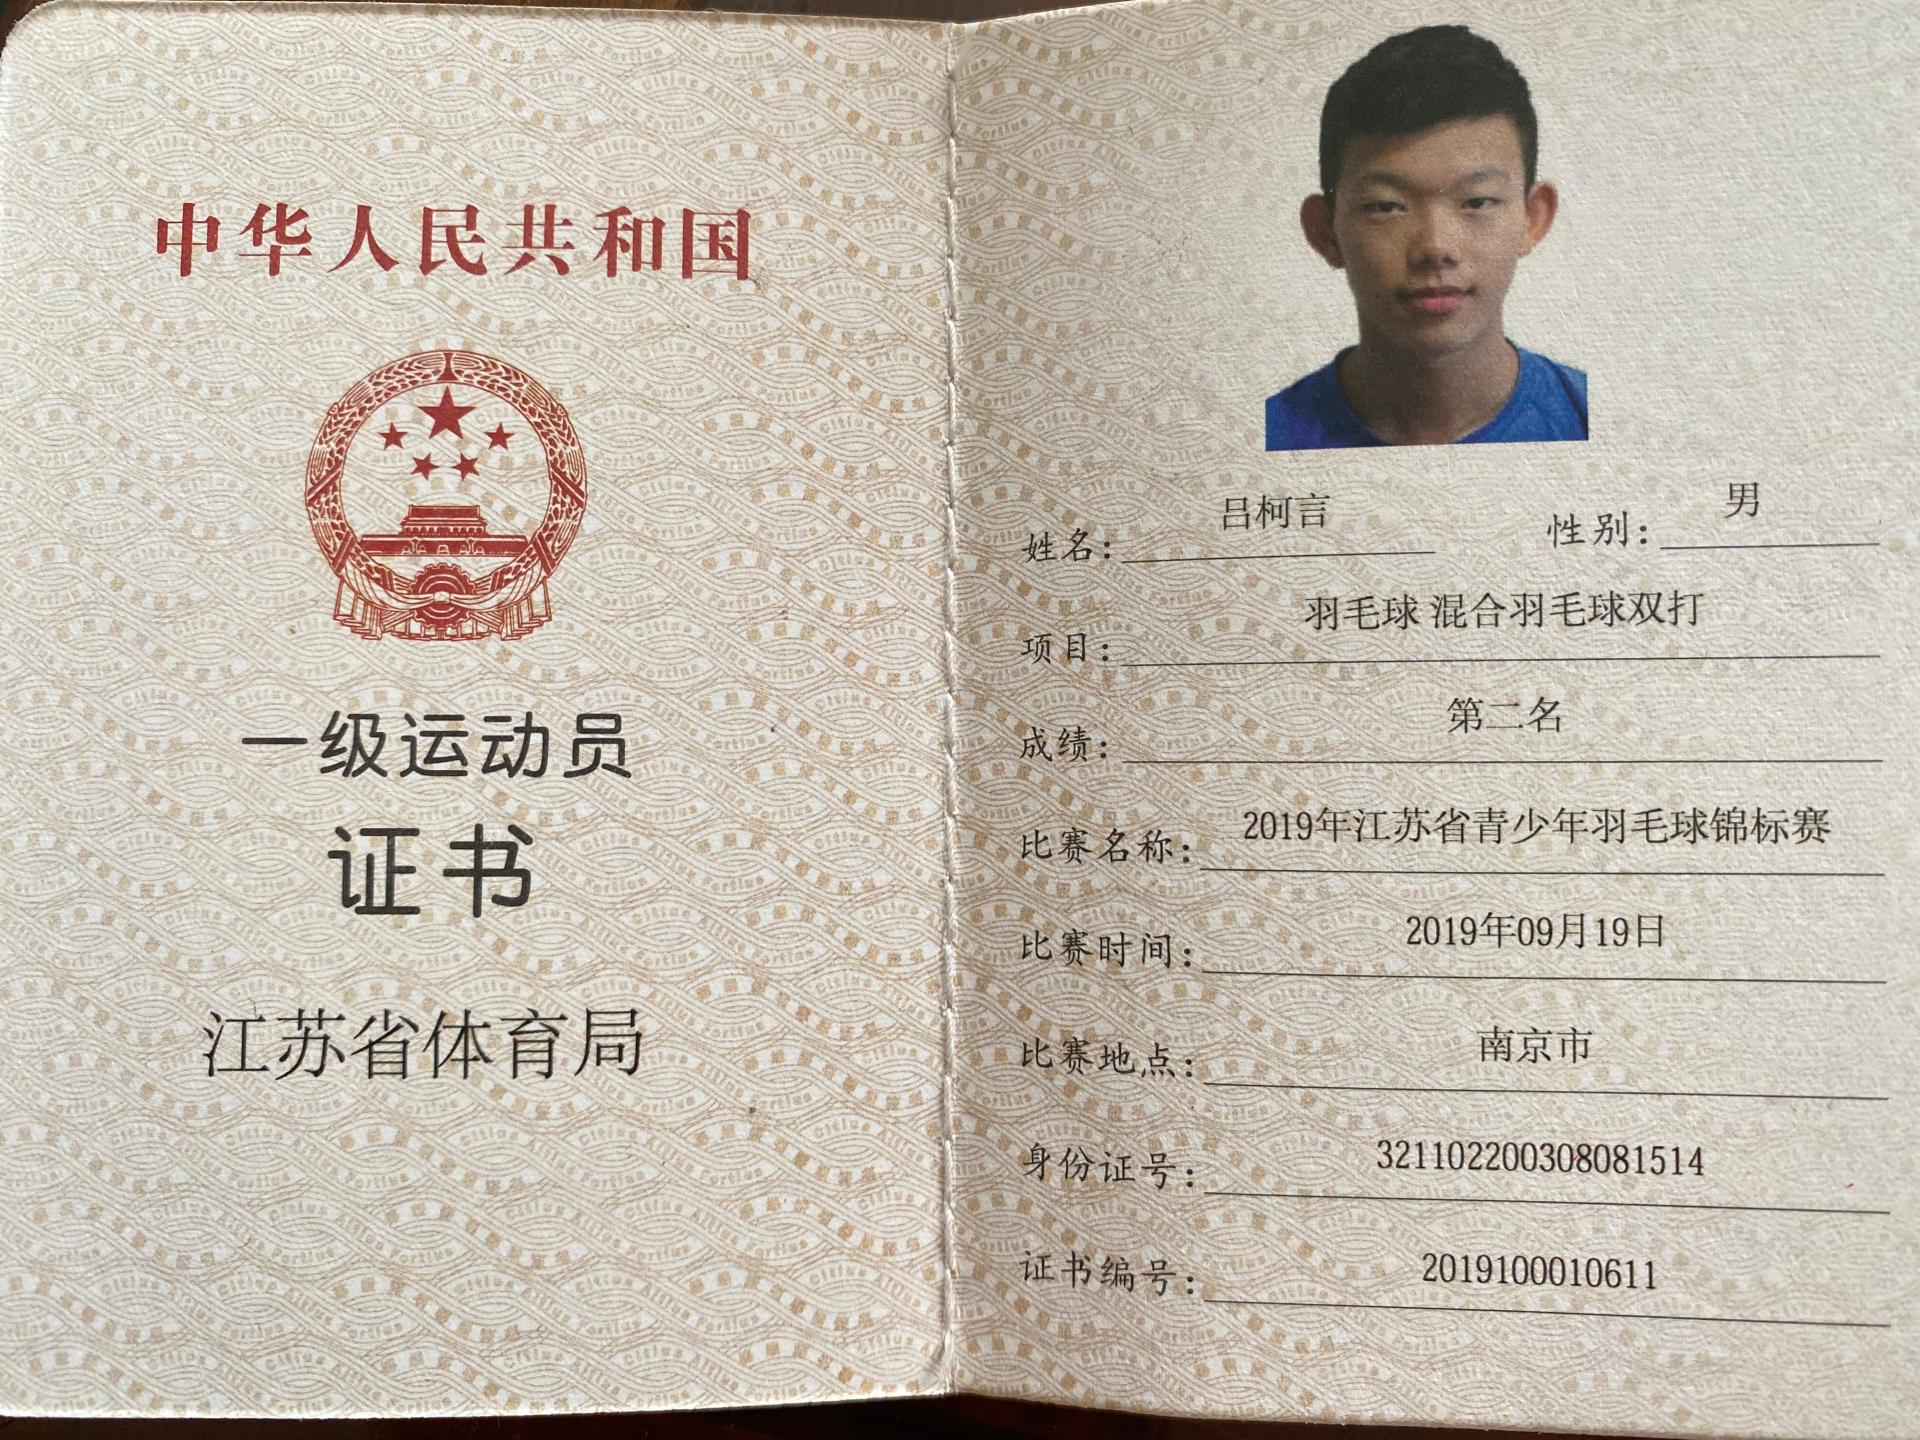 中华人民共和国
一级运动员
证书
江苏省体育局
姓名： 吕柯言 性别： 男
项目： 羽毛球 混合羽毛球双打
成绩： 第二名
比赛名称： 2019年江苏省青少年羽毛球锦标赛
比赛时间： 2019年09月19日
比赛地点： 南京市
身份证号： 321102200308081514
证书编号： 2019100010611